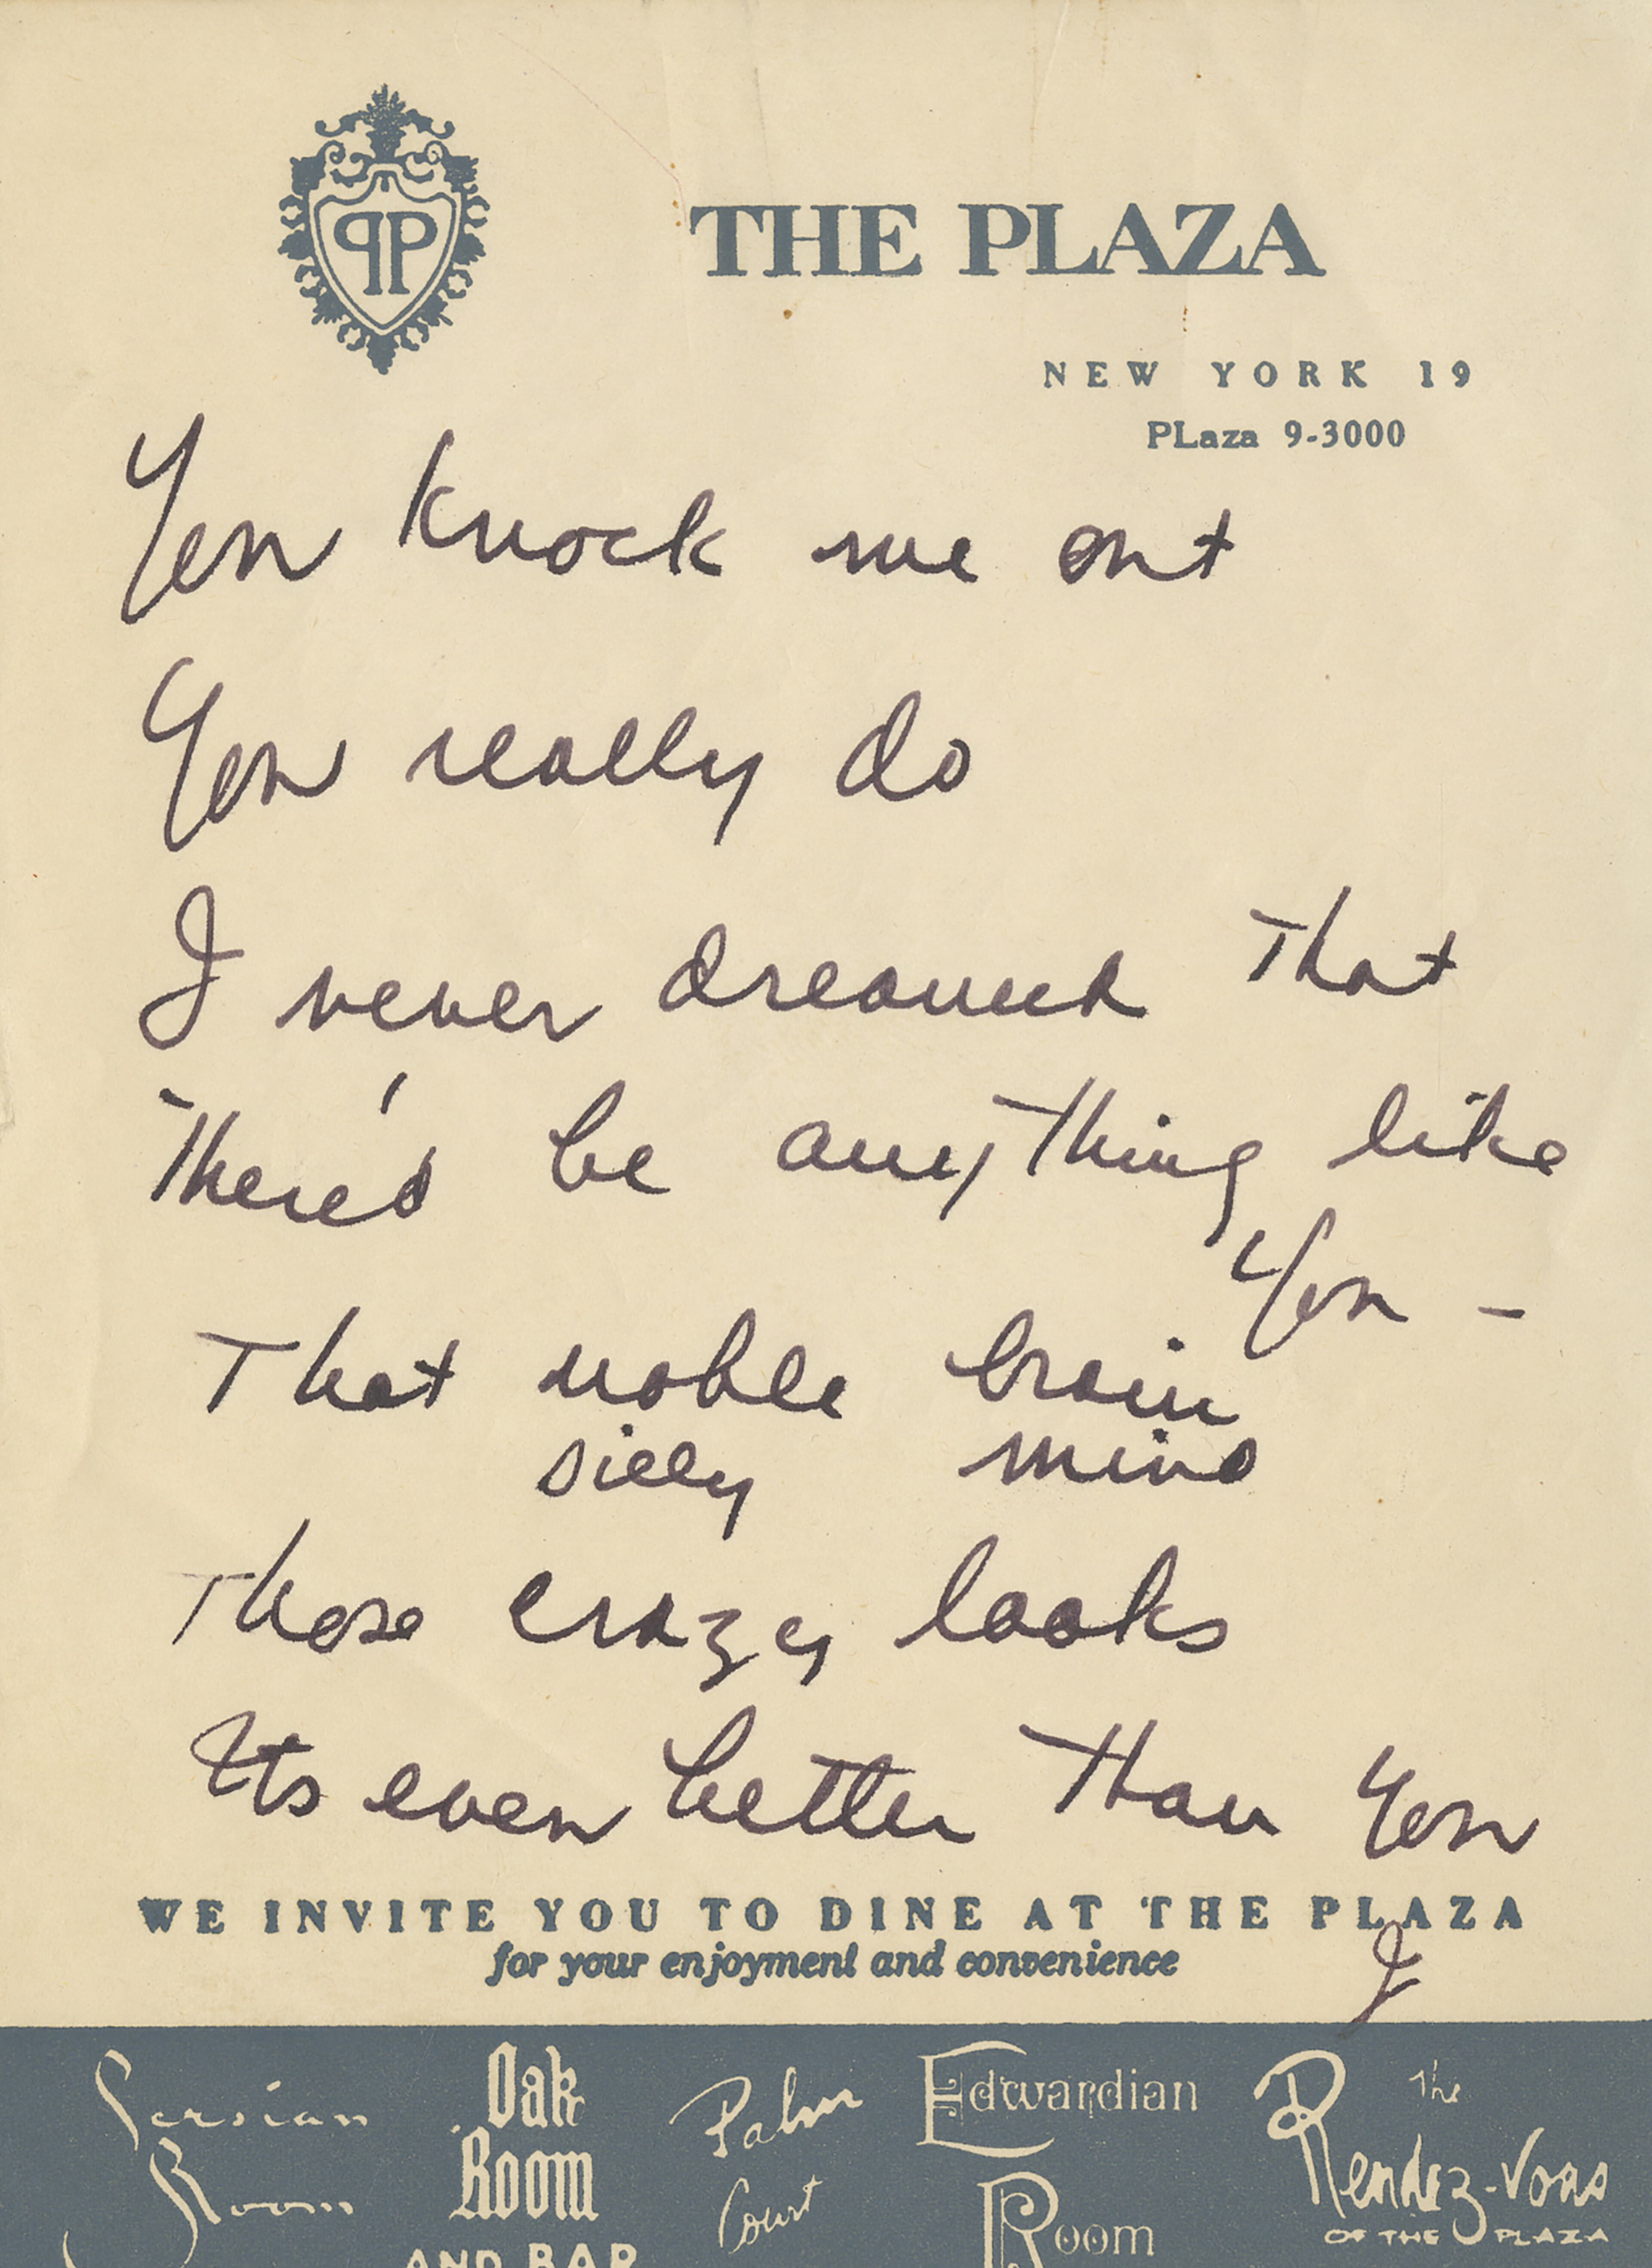 PP
THE PLAZA
NEW YORK 19
PLaza 9-3000
You knock me out
You really do
I never dreamed that
There'd be anything like
You –
That noble brain
silly mind
Those crazy looks
Its even better than You
WE INVITE YOU TO DINE AT THE PLAZA
I
for your enjoyment and convenience
Persian Room
Oak Room AND BAR
Palm Court
Edwardian Room
The Rendez-Vous OF THE PLAZA